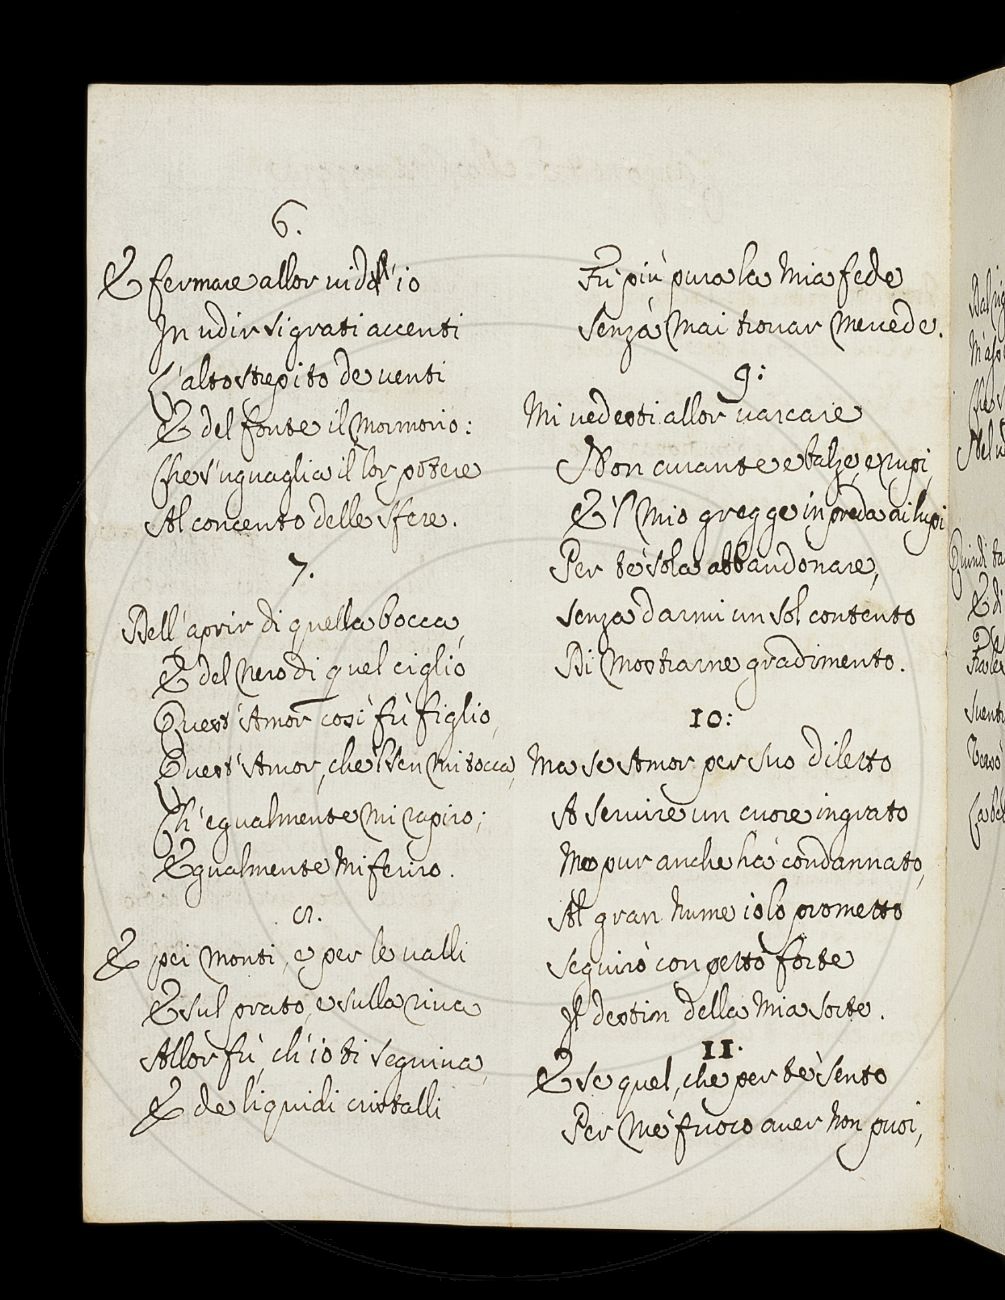 6.
E fermare allor vidd'io
In udir sì grati accenti
L'alto strepito de venti
E del fonte il mormorio:
Che s'uguaglia il lor potere
Al concento delle sfere.
7.
Dell'aprir di quella bocca,
E del nero di quel ciglio
Quest'Amor così fù figlio,
Quest'Amor, che ben mi tocca,
Ch'egualmente mi rapiro;
Egualmente mi feriro.
8.
E pei monti, e per le valli
E sul prato, e sulla riva
Allor fù, ch'io ti seguiva,
E de liquidi cristalli
Fù più pura la mia fede
Senza mai trovar mercede.
9:
Mi vedesti allor varcare
Non curante e balze, e rupi,
E'l mio gregge in preda ai lupi
Per te sola abbandonare,
Senza darmi un sol contento
Di mostrarne gradimento.
10:
Ma se Amor per suo diletto
A servire un cuore ingrato
Me pur anche hà condannato,
Al gran Nume io lo prometto
Seguirò con petto forte
Il destin della mia sorte.
11.
E se quel, che per te sento
Per me fuoco aver non puoi,